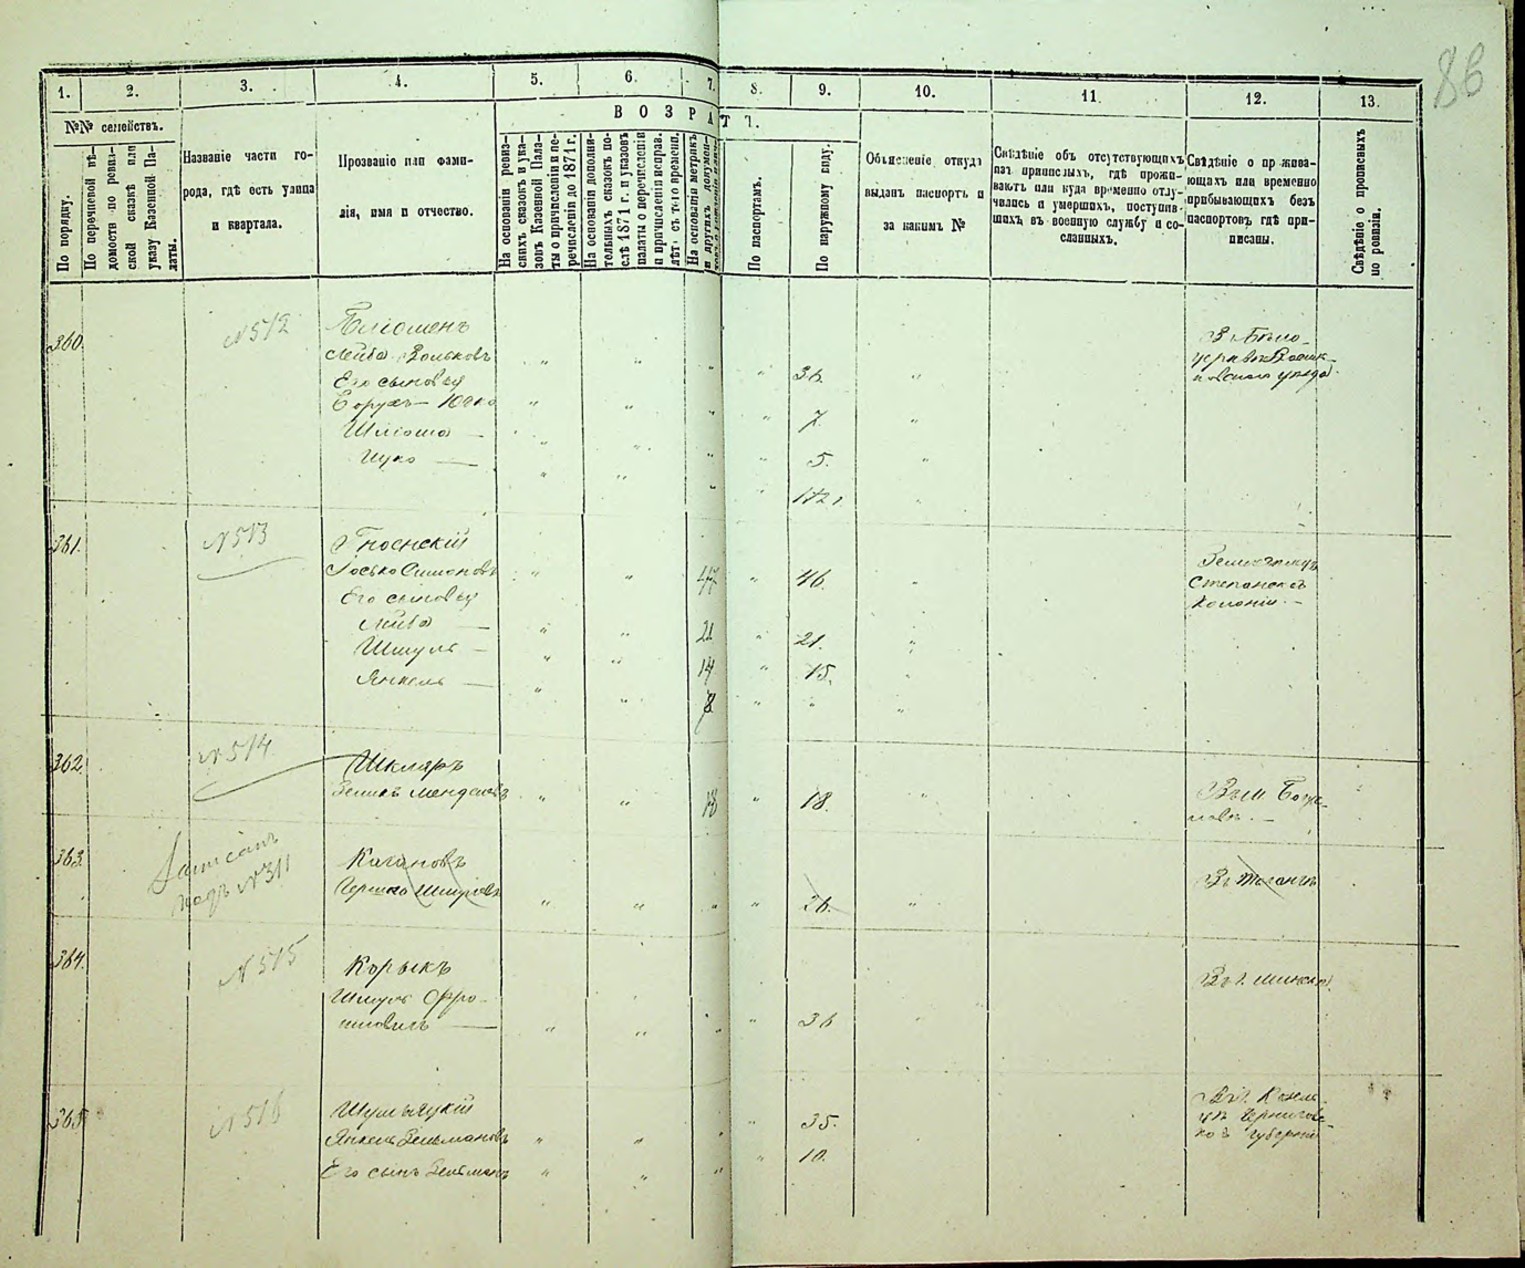 86
1.
2.
3.
4.
5.
6.
7.
8.
9.
10.
11.
12.
13.
№№ семействъ.
ВОЗРАСТЪ.
По порядку.
По перечневой вѣ-
домости по ревиз-
ской сказкѣ или
указу Казенной Па-
латы.
Названіе части го-
рода, гдѣ есть улица
и квартала.
Прозваніе или фами-
лія, имя и отчество.
На основаніи ревиз-
скихъ сказокъ и ука-
зовъ Казенной Пала-
ты о причисленіи и пе-
речисленіи до 1871 г.
На основаніи дополни-
тельныхъ сказокъ по-
слѣ 1871 г. и указовъ
палаты о перечисленіи
и причисленіи исправ.
лѣт. съ того времени.
На основаніи метрикъ
и другихъ докумен-
По паспортамъ.
По наружному виду.
Объясненіе откуда
выданъ паспортъ и
за какимъ №
Свѣдѣніе объ отсутствующихъ
изъ приписныхъ, гдѣ прожи-
ваютъ или куда временно отлу-
чились и умершихъ, поступив-
шихъ въ военную службу и со-
сланныхъ.
Свѣдѣніе о прожива-
ющихъ или временно
прибывающихъ безъ
паспортовъ гдѣ при-
писаны.
Свѣдѣніе о прописныхъ
по ревизіи.
360.
№ 512
Лейба Вольковъ
36.
Его сыновья
Борухъ-Юдко
7.
Шліома —
5.
Ицко —
361.
№ 513
Гноенскій
Іосько Симоновъ
47
46.
Степанской
Колоніи. —
Его сыновья
Лейба —
21
21.
Шмуль —
14
15.
Янкель —
8
362.
№ 514
Шкляръ
Зеликъ Менделевъ
18
18.
Въ м. Богу-
славѣ. —
363.
Записанъ
подъ № 311
Кагановъ
Гершко Шмулевъ
26.
364.
№ 515
Корыкъ
Шмуль Фро-
имовичъ —
36
Въ г. Минскѣ.
365
№ 516
Шумяцкій
Янкель Зельмановъ
35.
Въ г. Козель-
цѣ Чернигов-
ной губерніи
Его сынъ Зельманъ
10.